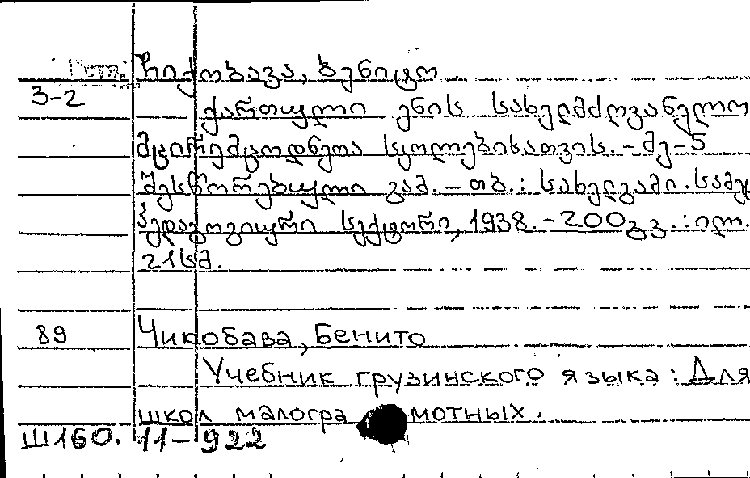 ჩიქობავა, ბენიტო
3-2
ქართული ენის სახელმძღვანელო
მცირემცოდნეთა სკოლებისათვის. - მე-5
შესწორებული გამ. - თბ.: სახელგამი. სამც
პედაგოგიური სექტორი, 1938. - 200გვ. : ილ.
21სმ.
89 Чикобава, Бенито
Учебник грузинского языка : Для
школ малограмотных.
Ш160. 11-922